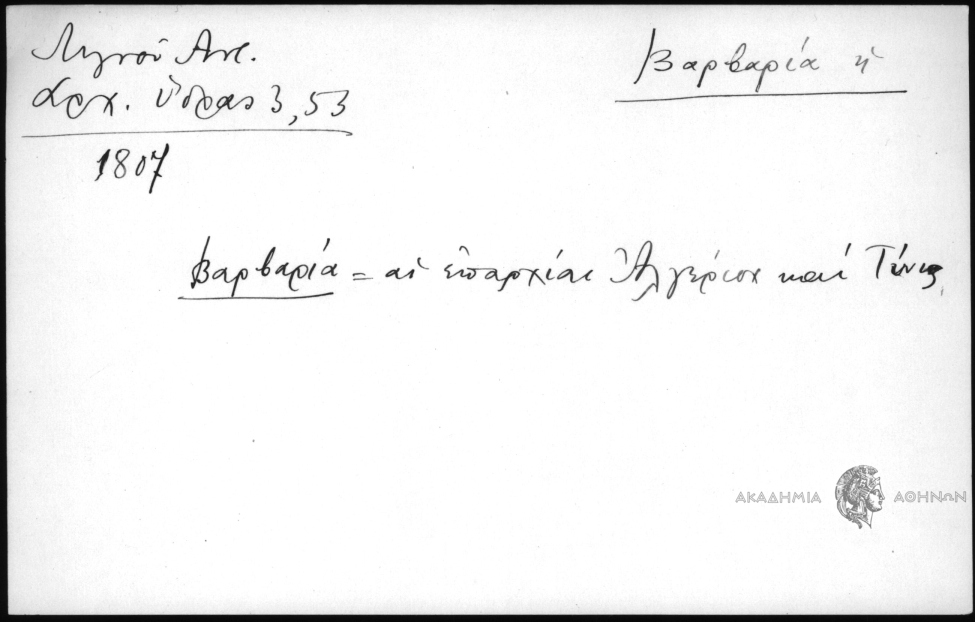 Λιγνού Αντ.
Αρχ. Ὕδρας 3, 53
1807
Βαρβαρία ἡ
Βαρβαρία = αἱ ἐπαρχίαι Ἀλγέριον καί Τύνις
ΑΚΑΔΗΜΙΑ ΑΘΗΝΩΝ